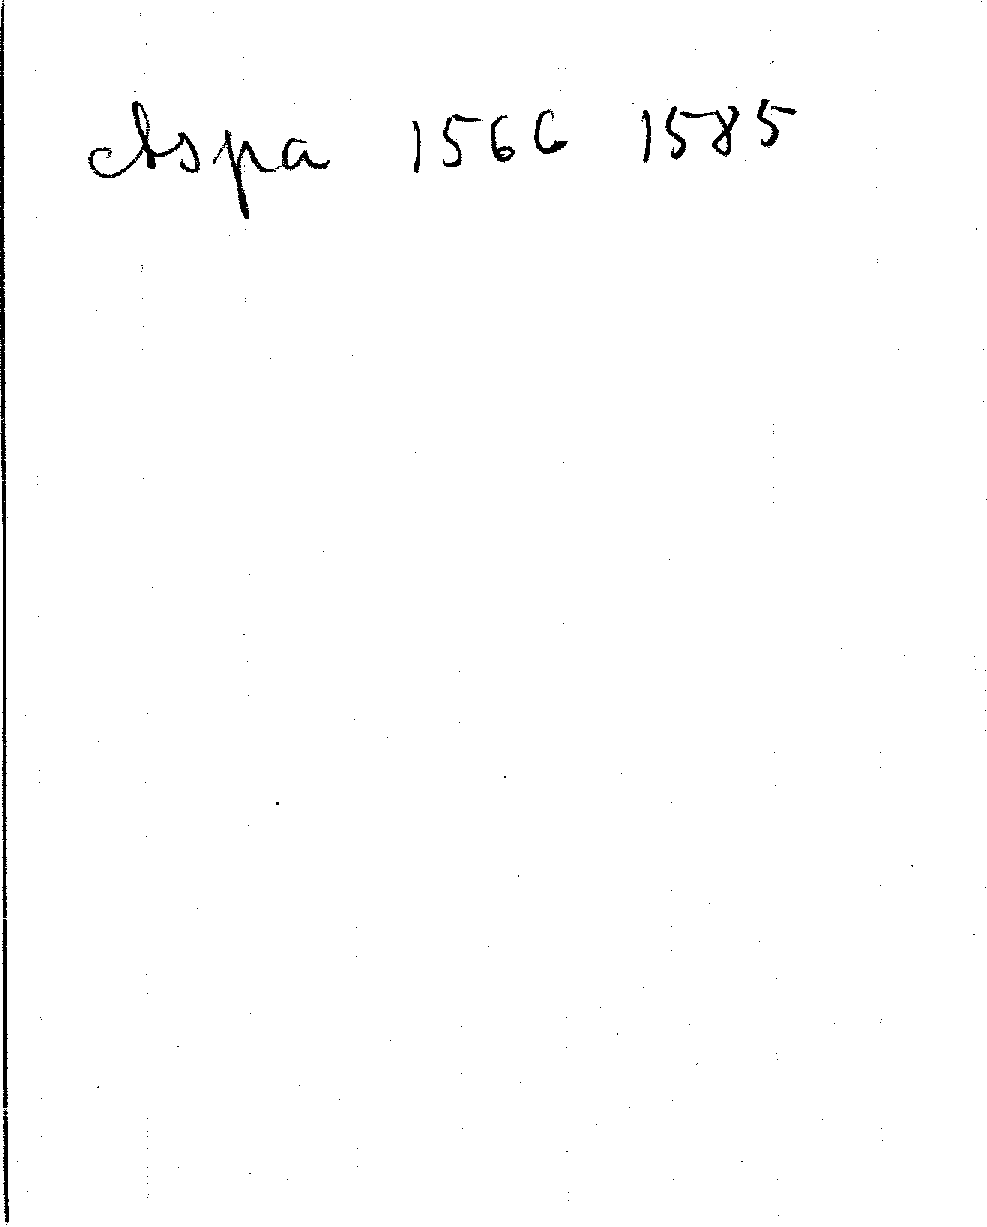 Aspa 1566 1585